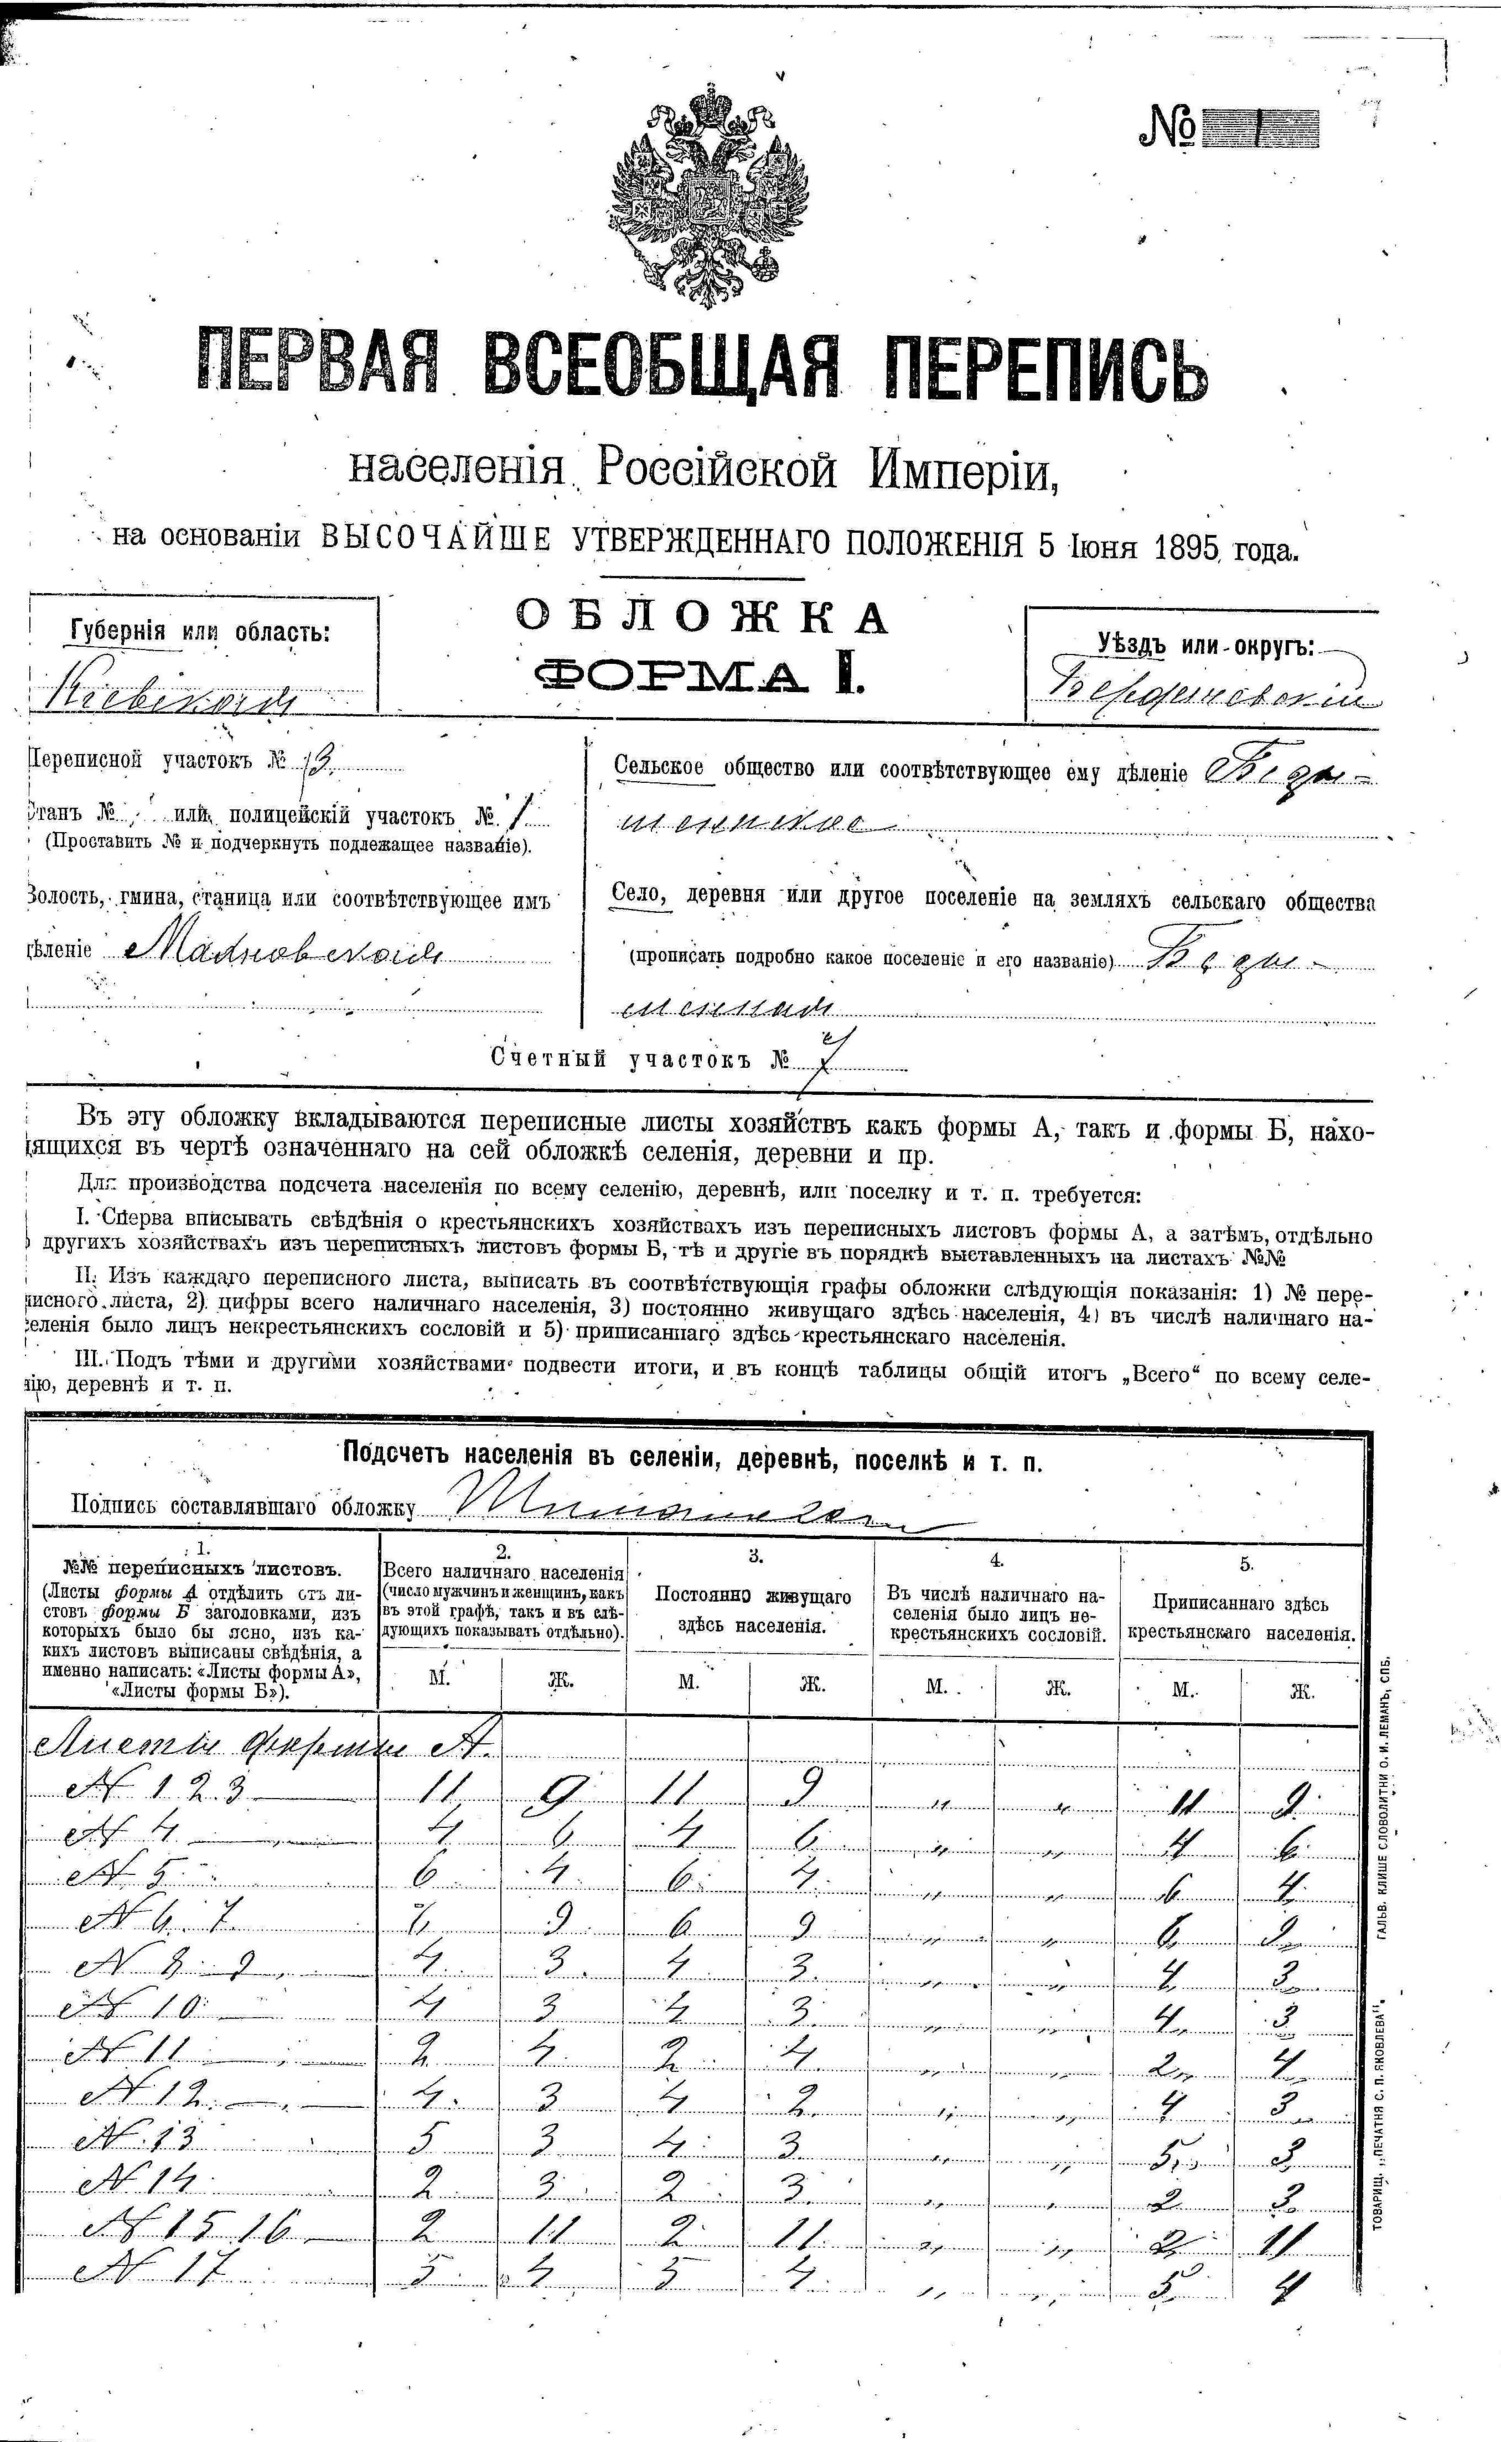 № 1
ПЕРВАЯ ВСЕОБЩАЯ ПЕРЕПИСЬ
населенія Россійской Имперіи,
на основаніи ВЫСОЧАЙШЕ УТВЕРЖДЕННАГО ПОЛОЖЕНІЯ 5 Іюня 1895 года.
ОБЛОЖКА
ФОРМА I.
Губернія или область:
Кіевская
Уѣздъ или округъ:
Бердичевскій
Переписной участокъ № 13.
Станъ № или полицейскій участокъ № 1
(Проставить № и подчеркнуть подлежащее названіе).
Волость, гмина, станица или соотвѣтствующее имъ
дѣленіе Махновская
Сельское общество или соотвѣтствующее ему дѣленіе
Село, деревня или другое поселеніе на земляхъ сельскаго общества
(прописать подробно какое поселеніе и его названіе)
Счетный участокъ № 7
Въ эту обложку вкладываются переписные листы хозяйствъ какъ формы А, такъ и формы Б, нахо-
дящихся въ чертѣ означеннаго на сей обложкѣ селенія, деревни и пр.
Для производства подсчета населенія по всему селенію, деревнѣ, или поселку и т. п. требуется:
I. Сперва вписывать свѣдѣнія о крестьянскихъ хозяйствахъ изъ переписныхъ листовъ формы А, а затѣмъ, отдѣльно
о другихъ хозяйствахъ изъ переписныхъ листовъ формы Б, тѣ и другіе въ порядкѣ выставленныхъ на листахъ №№
II. Изъ каждаго переписного листа, выписать въ соотвѣтствующія графы обложки слѣдующія показанія: 1) № пере-
писного листа, 2) цифры всего наличнаго населенія, 3) постоянно живущаго здѣсь населенія, 4) въ числѣ наличнаго на-
селенія было лицъ некрестьянскихъ сословій и 5) приписаннаго здѣсь крестьянскаго населенія.
III. Подъ тѣми и другими хозяйствами подвести итоги, и въ концѣ таблицы общій итогъ „Всего“ по всему селе-
нію, деревнѣ и т. п.
Подсчетъ населенія въ селеніи, деревнѣ, поселкѣ и т. п.
Подпись составлявшаго обложку
1.
№№ переписныхъ листовъ.
(Листы формы А отдѣлить отъ ли-
стовъ формы Б заголовками, изъ
которыхъ было бы ясно, изъ ка-
кихъ листовъ выписаны свѣдѣнія, а
именно написать: «Листы формы А»,
«Листы формы Б»).
2.
Всего наличнаго населенія
(число мужчинъ и женщинъ, какъ
въ этой графѣ, такъ и въ слѣ-
дующихъ показывать отдѣльно).
М. Ж.
3.
Постоянно живущаго
здѣсь населенія.
М. Ж.
4.
Въ числѣ наличнаго на-
селенія было лицъ не-
крестьянскихъ сословій.
М. Ж.
5.
Приписаннаго здѣсь
крестьянскаго населенія.
М. Ж.
Листы формы А.
№ 1 2 3 11 9 11 9 " " 11 9
№ 4 4 6 4 6 " " 4 6
№ 5 6 4 6 4 " " 6 4
№ 6 7 9 6 9 " " 6 9
№ 8 9 4 3 4 3 " " 4 3
№ 10 4 3 4 3 " " 4 3
№ 11 2 4 2 4 " " 2 4
№ 12 4 3 4 2 " " 4 3
№ 13 5 3 4 3 " " 5 3
№ 14 2 3 2 3 " " 2 3
№ 15 16 2 11 2 11 " " 2 11
№ 17 5 4 5 4 " " 5 4
ГАЛЬВ. КЛИШЕ СЛОВОЛИТНИ О. И. ЛЕМАНЪ, СПБ.
ТОВАРИЩ. „ПЕЧАТНЯ С. П. ЯКОВЛЕВА“.